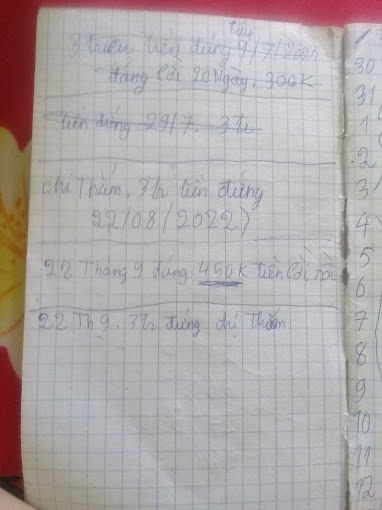 tây
3 triệu tiền đứng 9/7/2022
đáng lời 20 Ngày. 300K
tiền đứng. 29/7. 3 tr
chị Thắm. 3tr tiền đứng
22/08/2022)
22 Tháng 9 đáng 450K tiền lời rồi
22 Th 9. 3tr đứng chị Thắm
30
31
1
2
3
4
5
6
7
8
9
10
11
12